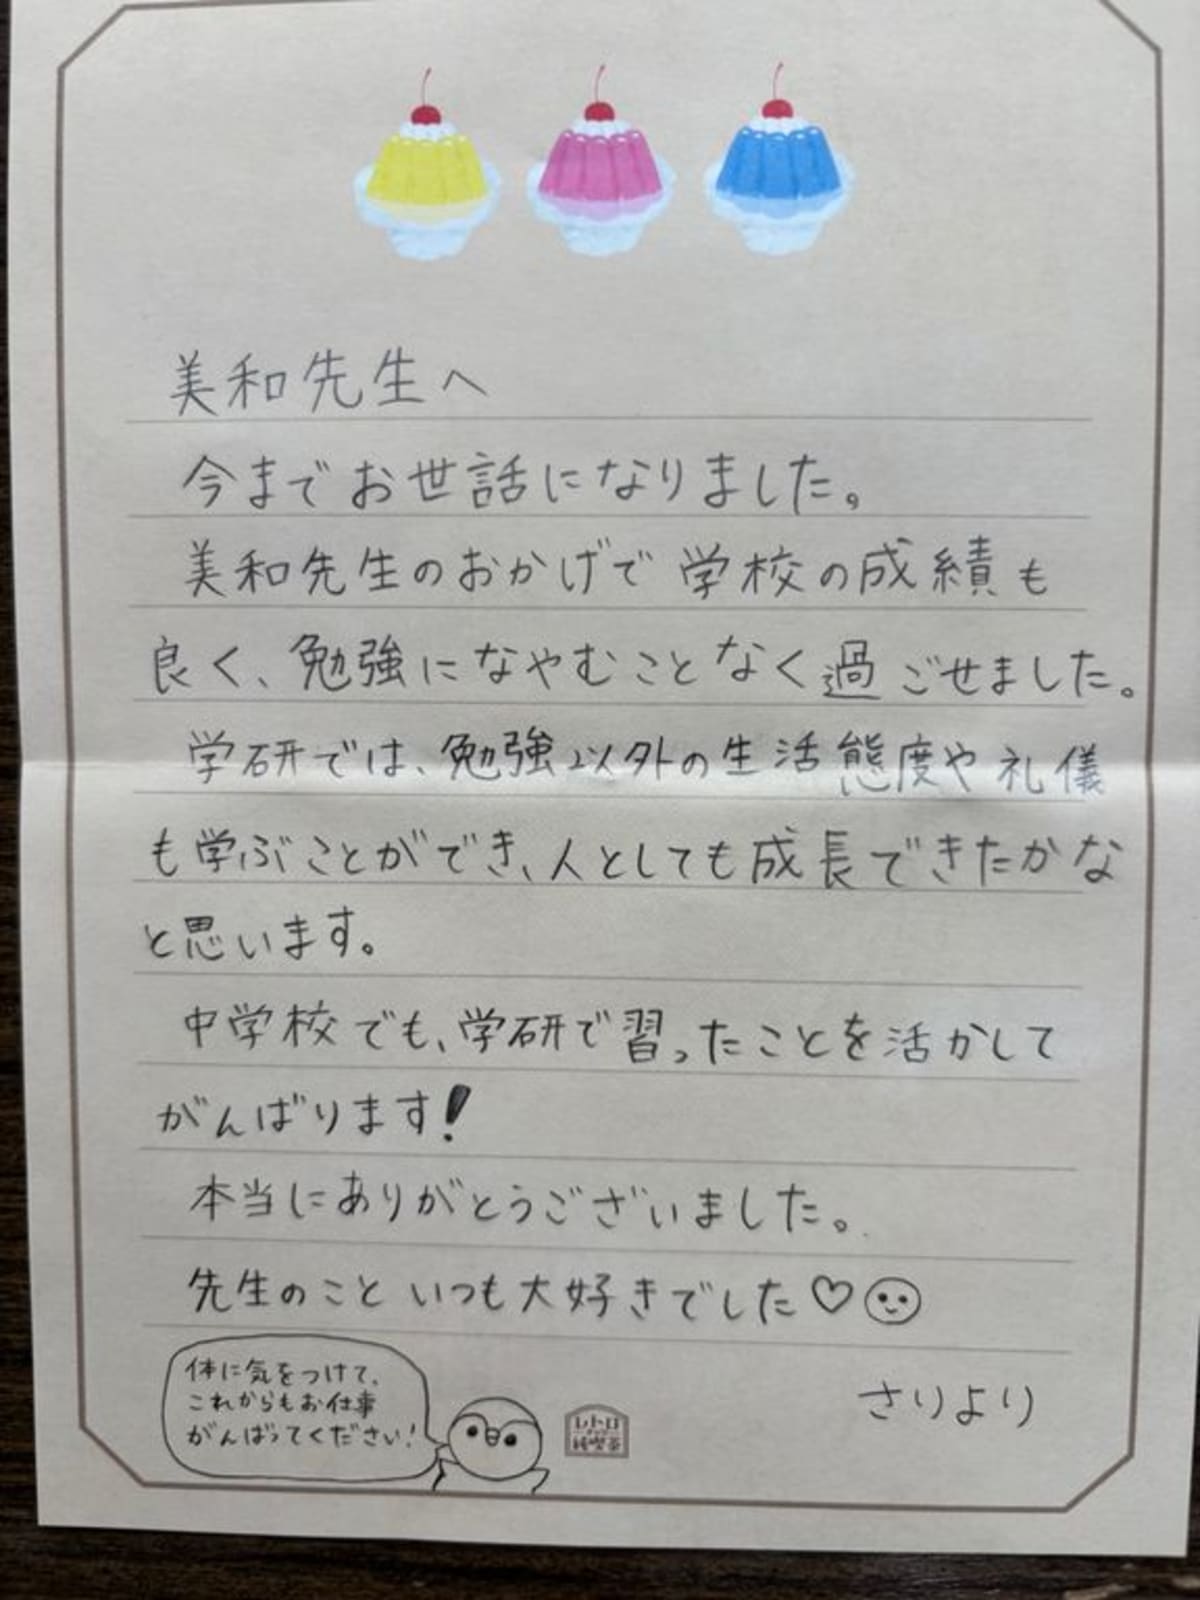 美和先生へ
今までお世話になりました。
美和先生のおかげで学校の成績も
良く、勉強になやむことなく過ごせました。
学研では、勉強以外の生活態度や礼儀
も学ぶことができ、人としても成長できたかな
と思います。
中学校でも、学研で習ったことを活かして
がんばります!
本当にありがとうございました。
先生のこといつも大好きでした♡
さりより
体に気をつけて、
これからもお仕事
がんばってください!
レトロ
純喫茶